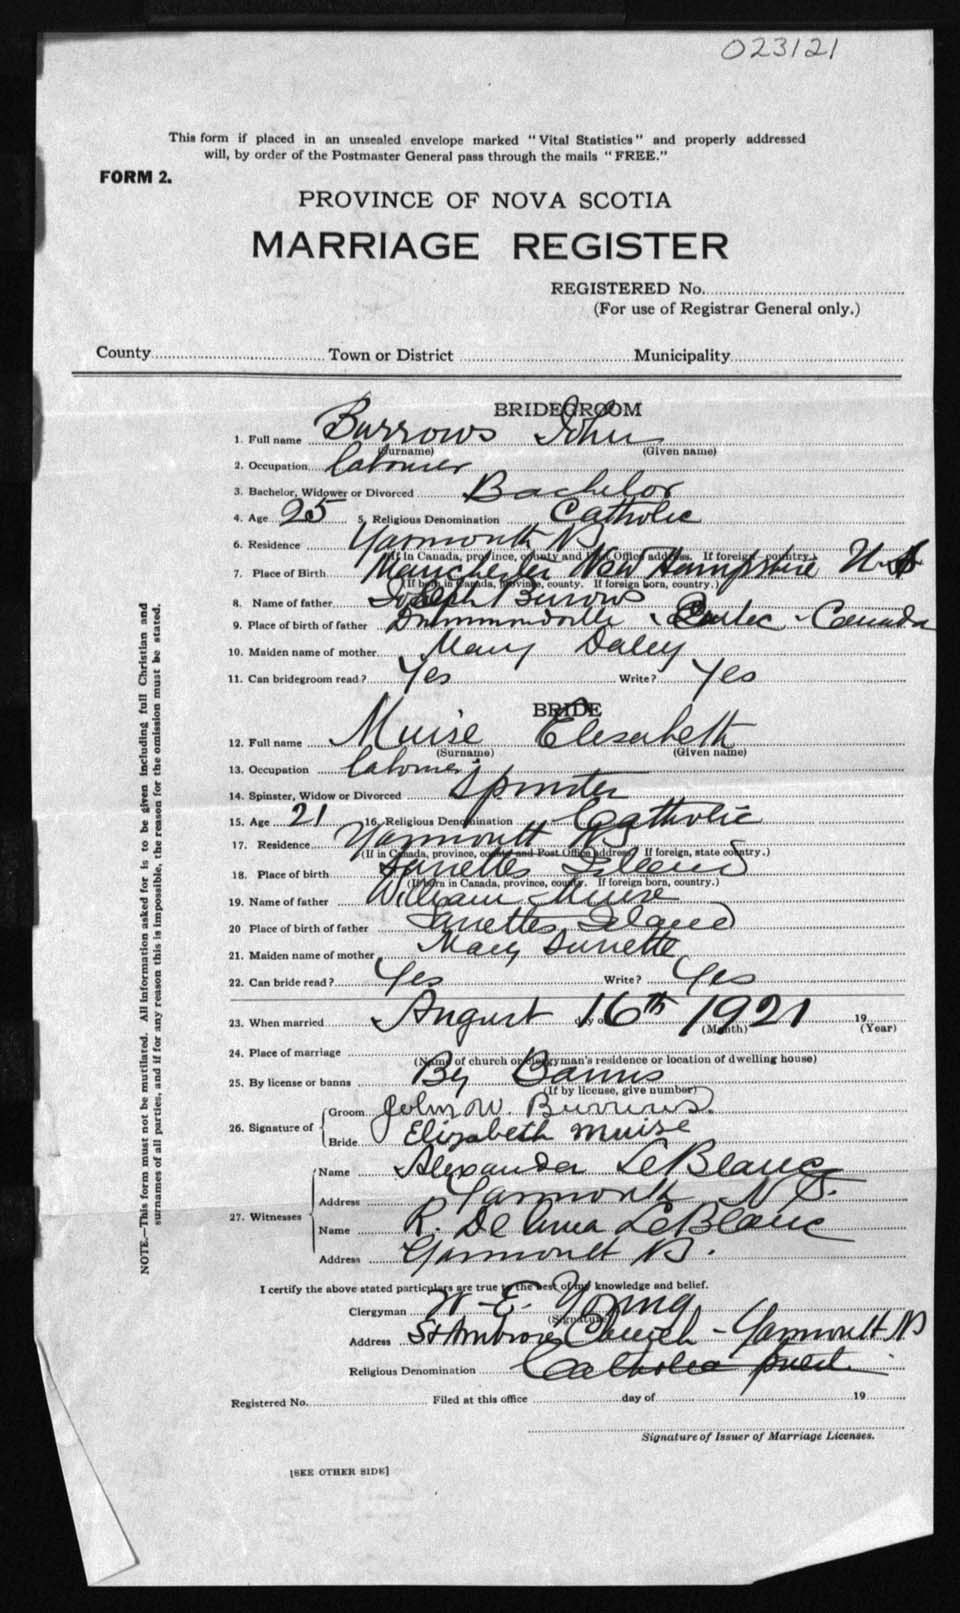 023121
This form if placed in an unsealed envelope marked "Vital Statistics" and properly addressed
will, by order of the Postmaster General pass through the mails "FREE."
FORM 2.
PROVINCE OF NOVA SCOTIA
MARRIAGE REGISTER
REGISTERED No.
(For use of Registrar General only.)
County Town or District Municipality
BRIDEGROOM
1. Full name Burrows John
(Surname) (Given name)
2. Occupation Laborer
3. Bachelor, Widower or Divorced Bachelor
4. Age 25 5. Religious Denomination Catholic
6. Residence Yarmouth NS
(If in Canada, province, county and Post Office address. If foreign country.)
7. Place of Birth Manchester New Hampshire U.S
(If born in Canada, province, county. If foreign born, country.)
8. Name of father Joseph Burrows
9. Place of birth of father Drummondville Quebec - Canada
10. Maiden name of mother Mary Daley
11. Can bridegroom read? Yes Write? Yes
BRIDE
12. Full name Muise Elesabeth
(Surname) (Given name)
13. Occupation Laborer
14. Spinster, Widow or Divorced Spinster
15. Age 21 16. Religious Denomination Catholic
17. Residence Yarmouth NS
(If in Canada, province, county and Post Office address. If foreign, state country.)
18. Place of birth Surettes Island
(If born in Canada, province, county. If foreign born, country.)
19. Name of father William Muise
20 Place of birth of father Surettes Island
21. Maiden name of mother Mary Surrette
22. Can bride read? Yes Write? Yes
23. When married August 16th day of 1921 19
(Month) (Year)
24. Place of marriage
(Name of church or clergyman's residence or location of dwelling house)
25. By license or banns By Banns
(If by license, give number)
26. Signature of Groom John W. Burrows.
Bride Elizabeth Muise
27. Witnesses Name Alexander LeBlanc
Address Yarmouth N S.
Name R. Delima LeBlanc
Address Yarmouth NS.
I certify the above stated particulars are true to the best of my knowledge and belief.
Clergyman W - E. Young
(Signature)
Address St Ambrose Church - Yarmouth NS
Religious Denomination Catholic Priest.
Registered No. Filed at this office day of 19
Signature of Issuer of Marriage Licenses.
[SEE OTHER SIDE]
NOTE.—This form must not be mutilated. All information asked for is to be given including full Christian and
surnames of all parties, and if for any reason this is impossible, the reason for the omission must be stated.